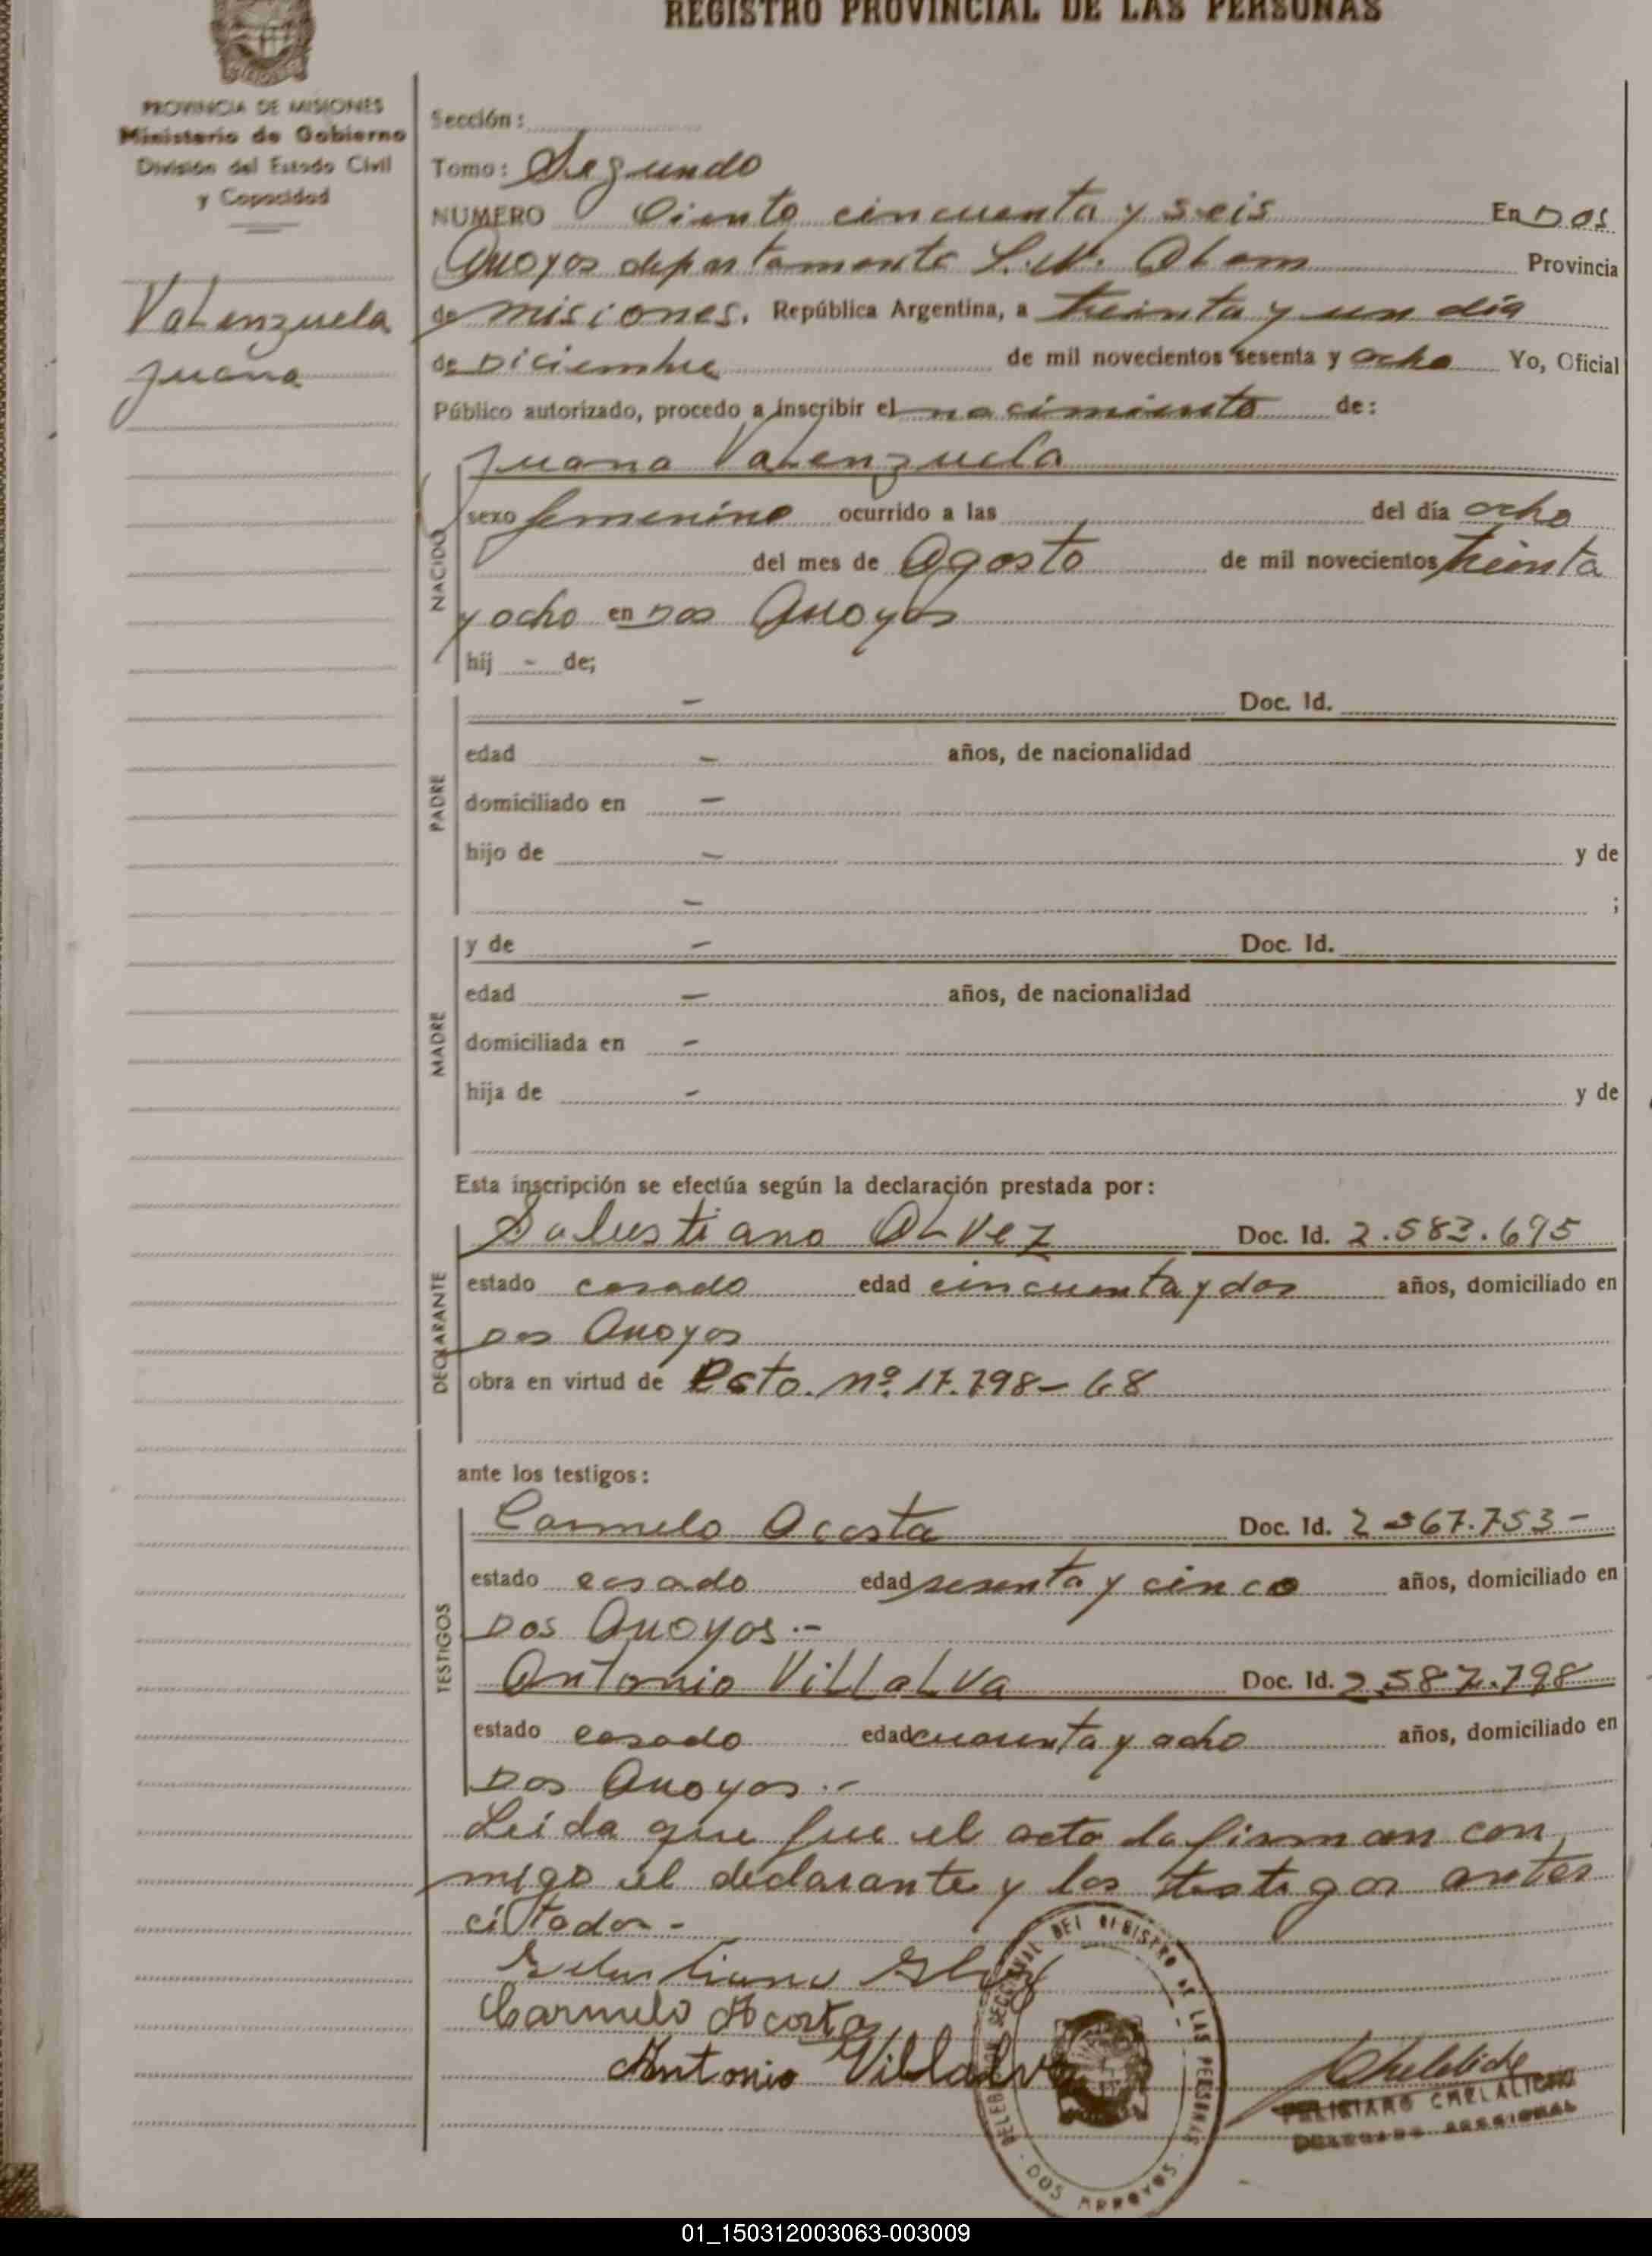 REGISTRO PROVINCIAL DE LAS PERSONAS
PROVINCIA DE MISIONES
Ministerio de Gobierno
División del Estado Civil
y Capacidad
Valenzuela
Juana
Sección:
Tomo: Segundo
NUMERO Ciento cincuenta y seis En Dos
Arroyos departamento L.N. Alem Provincia
de misiones. República Argentina, a treinta y un día
de Diciembre de mil novecientos sesenta y ocho Yo, Oficial
Público autorizado, procedo a inscribir el nacimiento de:
Juana Valenzuela
NACIDO
sexo femenino ocurrido a las del día ocho
del mes de Agosto de mil novecientos treinta
y ocho en Dos Arroyos
hij - de;
PADRE
- Doc. Id.
edad - años, de nacionalidad
domiciliado en -
hijo de - y de
- ;
MADRE
y de - Doc. Id.
edad - años, de nacionalidad
domiciliada en -
hija de - y de
Esta inscripción se efectúa según la declaración prestada por:
DECLARANTE
Salustiano ALVEZ Doc. Id. 2.583.695
estado casado edad cincuenta y dos años, domiciliado en
Dos Arroyos
obra en virtud de Esto. Nº 17.798-68
ante los testigos:
TESTIGOS
Carmelo Acosta Doc. Id.
estado casado edad sesenta y cinco años, domiciliado en
Dos Arroyos.-
Antonio Villalva Doc. Id. 2.587.798
estado casado edad cuarenta y ocho años, domiciliado en
Dos Arroyos.-
Leida que fue el acta la firman con
migo el declarante y los testigos antes
citados-
Carmelo Acosta
Antonio Villalva
DELEGACION SECCIONAL DEL REGISTRO DE LAS PERSONAS
DOS ARROYOS
01_150312003063-003009